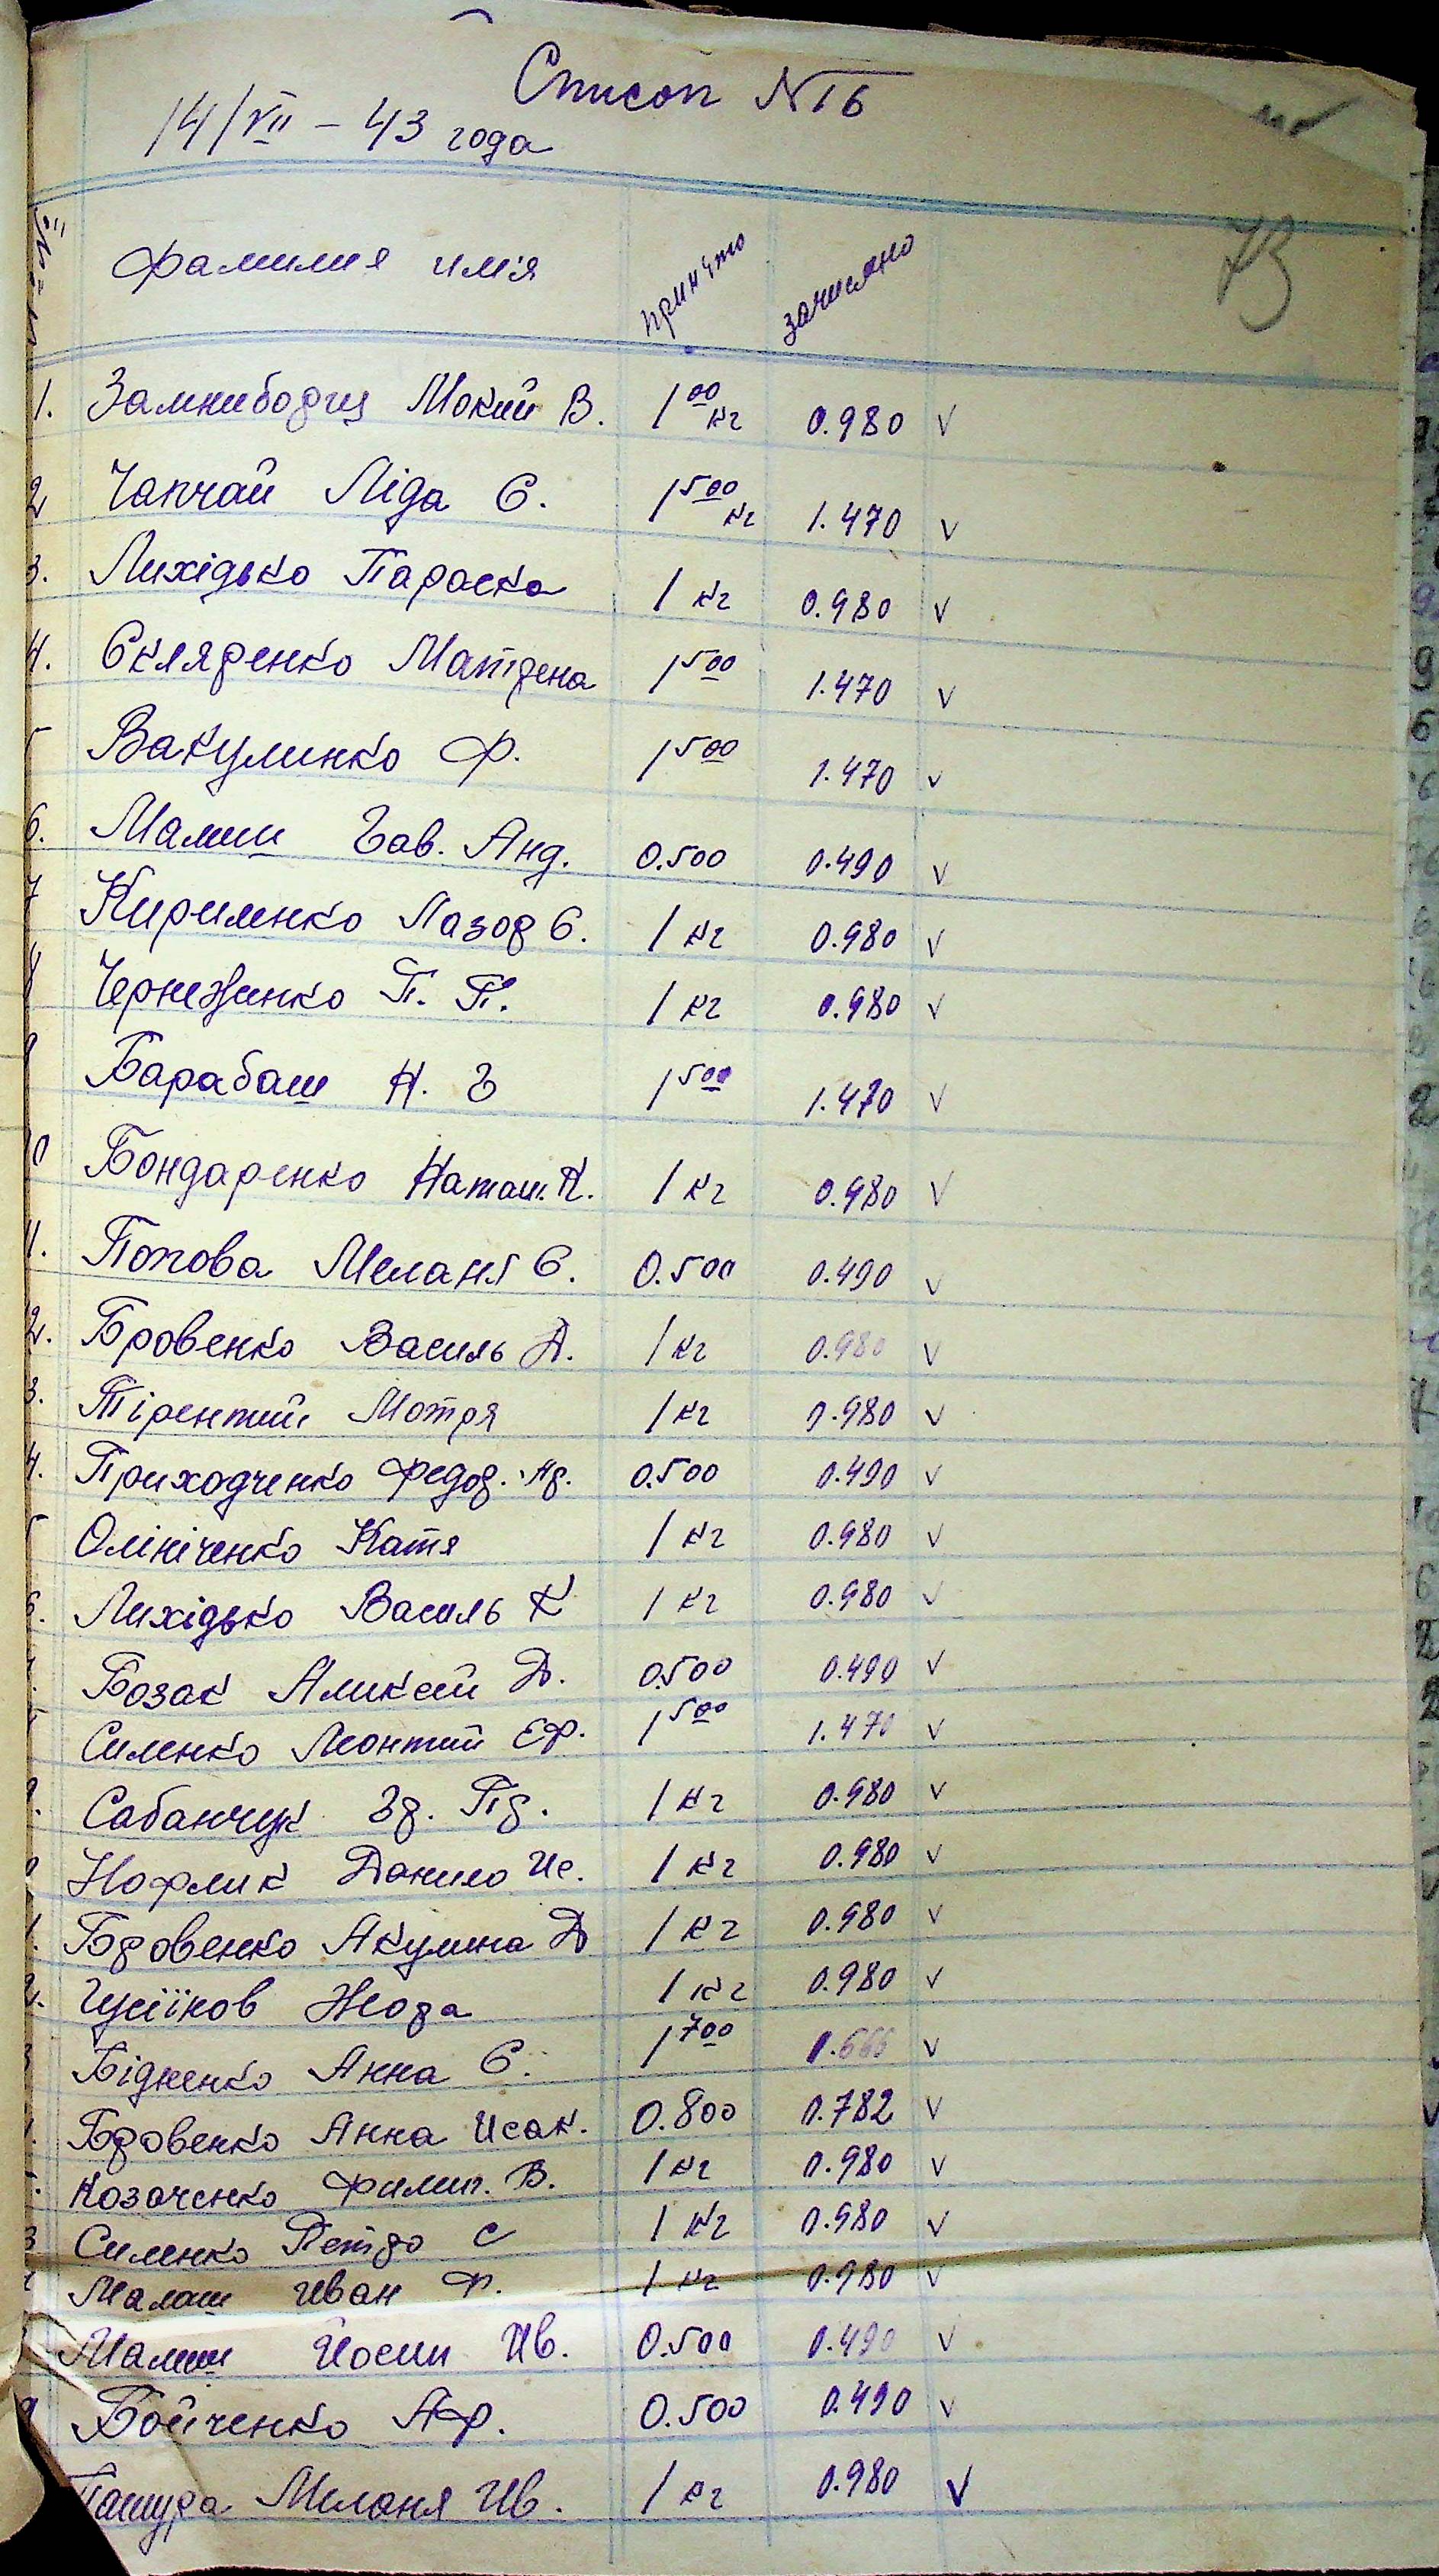 Список № 16
14/VII – 43 года
фамилия имя принято зачислено
73
1. Замниборщ Мокий В. 1 00 кг 0.980 v
2 Чапчай Ліда С. 1 500 кг 1.470 v
3. Лихідько Параска 1 кг 0.980 v
4. Скляренко Матрена 1 500 1.470 v
5 Вакулинко Ф. 1 500 1.470 v
6. Малиш Гав. Анд. 0.500 0.490 v
7 Кириленко Лазор С. 1 кг 0.980 v
8 П. П. 1 кг 0.980 v
9 Барабаш Н. Г 1 500 1.470 v
10 Бондаренко Наташ. К. 1 кг 0.980 v
11. Попова Меланя С. 0.500 0.490 v
2. Бровенко Василь Д. 1 кг 0.980 v
3. Тірентий Мотря 1 кг 0.980 v
4. Приходченко Федор. Ар. 0.500 0.490 v
5 Олініченко Катя 1 кг 0.980 v
6. Лихідько Василь К 1 кг 0.980 v
Бозак Аликсей Д. 0.500 0.490 v
Силенко Леонтий Еф. 1 500 1.470 v
9. Сабанчук Гр. Пр. 1 кг 0.980 v
Нофлик Данило Ис. 1 кг 0.980 v
1. Бровенко Акулина Д 1 кг 0.980 v
2. Жора 1 кг 0.980 v
3 Бідненко Анна С. 1 700 1.666 v
Бровенко Анна Исак. 0.800 0.782 v
Козаченко Филип. В. 1 кг 0.980 v
Силенко Петро С 1 кг 0.980 v
Малаш Иван Ф. 1 кг 0.980 v
Малиш Йосип Ив. 0.500 0.490 v
9 Бойченко Аф. 0.500 0.490 v
Пашура Меланя Ив. 1 кг 0.980 v